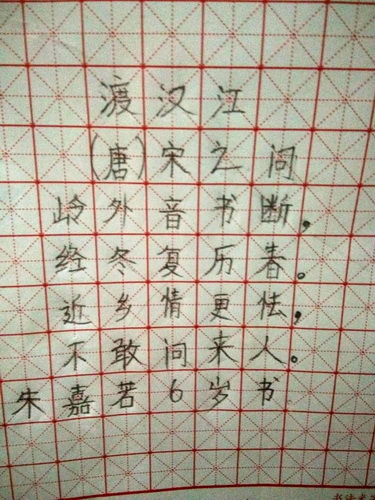 渡汉江
(唐)宋之问
岭外音书断,
经冬复历春。
近乡情更怯,
不敢问来人。
朱嘉若6岁书